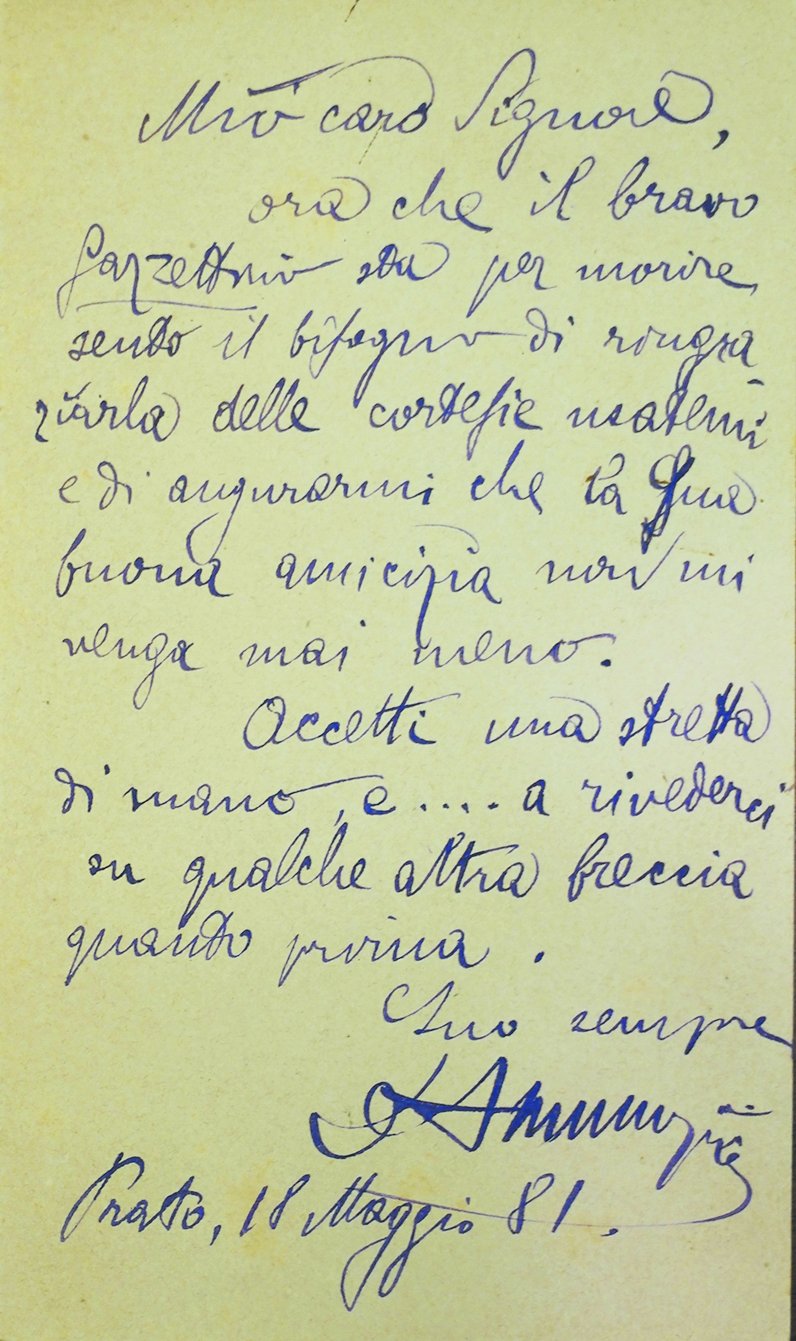 Mio caro Signore,
ora che il bravo
Gazzettino sta per morire
sento il bisogno di ringra
ziarla delle cortesie usatemi
e di augurarmi che la Sua
buona amicizia non mi
venga mai meno.
Accetti una stretta
di mano, e .... a rivederci
su qualche altra breccia
quanto prima.
Suo sempre
d'Annunzio
Prato, 18 Maggio 81.